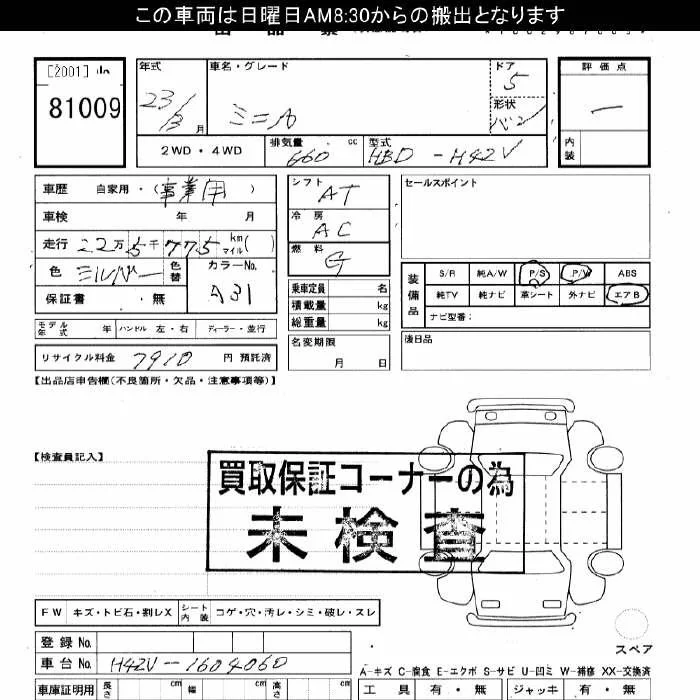 この車両は日曜日AM8:30からの搬出となります
[2001]
81009
年式 車名・グレード ドア 評価点
23/3月 ミニカ 5 一
形状 バン
2WD・4WD 排気量 660 cc 型式 HBD-H42V 内装
車歴 自家用・(事業用)
車検 年 月
走行 22万5千775 km マイル( )
色 シルバー 色替 カラーNo. A31
保証書 ・ 無
シフト AT
冷房 AC
燃料 G
乗車定員 名
積載量 kg
総重量 kg
名変期限 月 日
セールスポイント
装備品 S/R 純A/W P/S P/W ABS
純TV 純ナビ 革シート 外ナビ エアB
ナビ型番:
後日品
モデル年式 年 ハンドル 左・右 ディーラー・並行
リサイクル料金 7910 円 預託済
【出品店申告欄(不良箇所・欠品・注意事項等)】
【検査員記入】
買取保証コーナーの為
未検査
FW キズ・トビ石・割レX シート内装 コゲ・穴・汚レ・シミ・破レ・スレ
スペア
登録No.
車台No. H42V-1604060
A-キズ C-腐食 E-エクボ S-サビ U-凹ミ W-補修 XX-交換済
車庫証明用 長さ cm 幅 cm 高さ cm 工具 有・無 ジャッキ 有・無